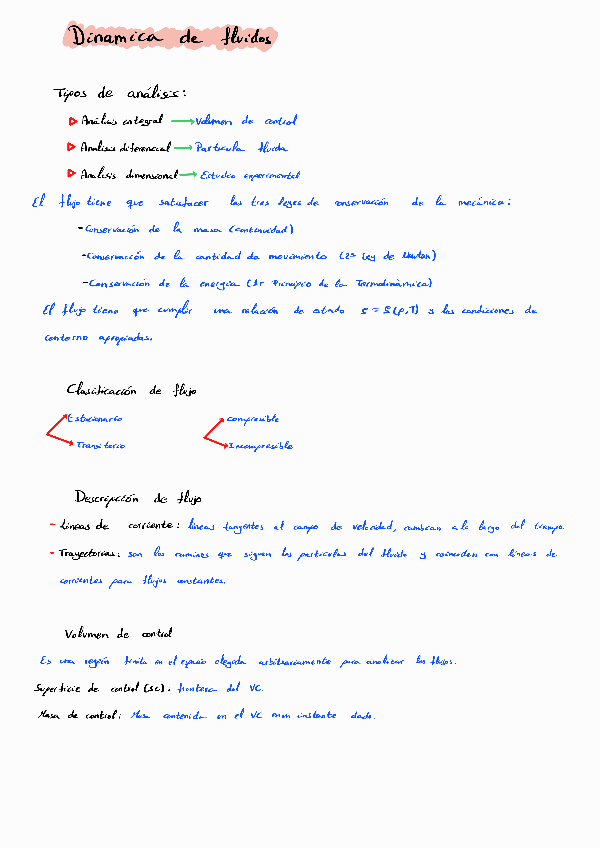 Dinamica de fluidos
Tipos de análisis:
Análisis integral → Volumen de control
Analisis diferencial → Particula fluida
Analisis dimensional → Estudio experimental
El flujo tiene que satisfacer las tres leyes de conservación de la mecánica:
-Conservación de la masa (continuidad)
-Conservación de la cantidad de movimiento (2ª Ley de Newton)
-Conservación de la energia (1r Principio de la Termodinámica)
El flujo tiene que cumplir una relación de estado = (P,T) y las condiciones de
contorno apropiadas.
Clasificación de flujo
Estacionario
compresible
Transitorio
Incompresible
Descripción de flujo
- Lineas de corriente: lineas tangentes al campo de velocidad, cambian a lo largo del tiempo.
- Trayectorias: son los caminos que siguen las particulas del fluido y coinciden con lineas de
corrientes para flujos constantes.
Volumen de control
Es una región finita en el espacio elegada arbitrariamente para analizar los flujos.
Superficie de control (SC). frontera del VC.
Masa de control: Masa contenida en el VC en un instante dado.